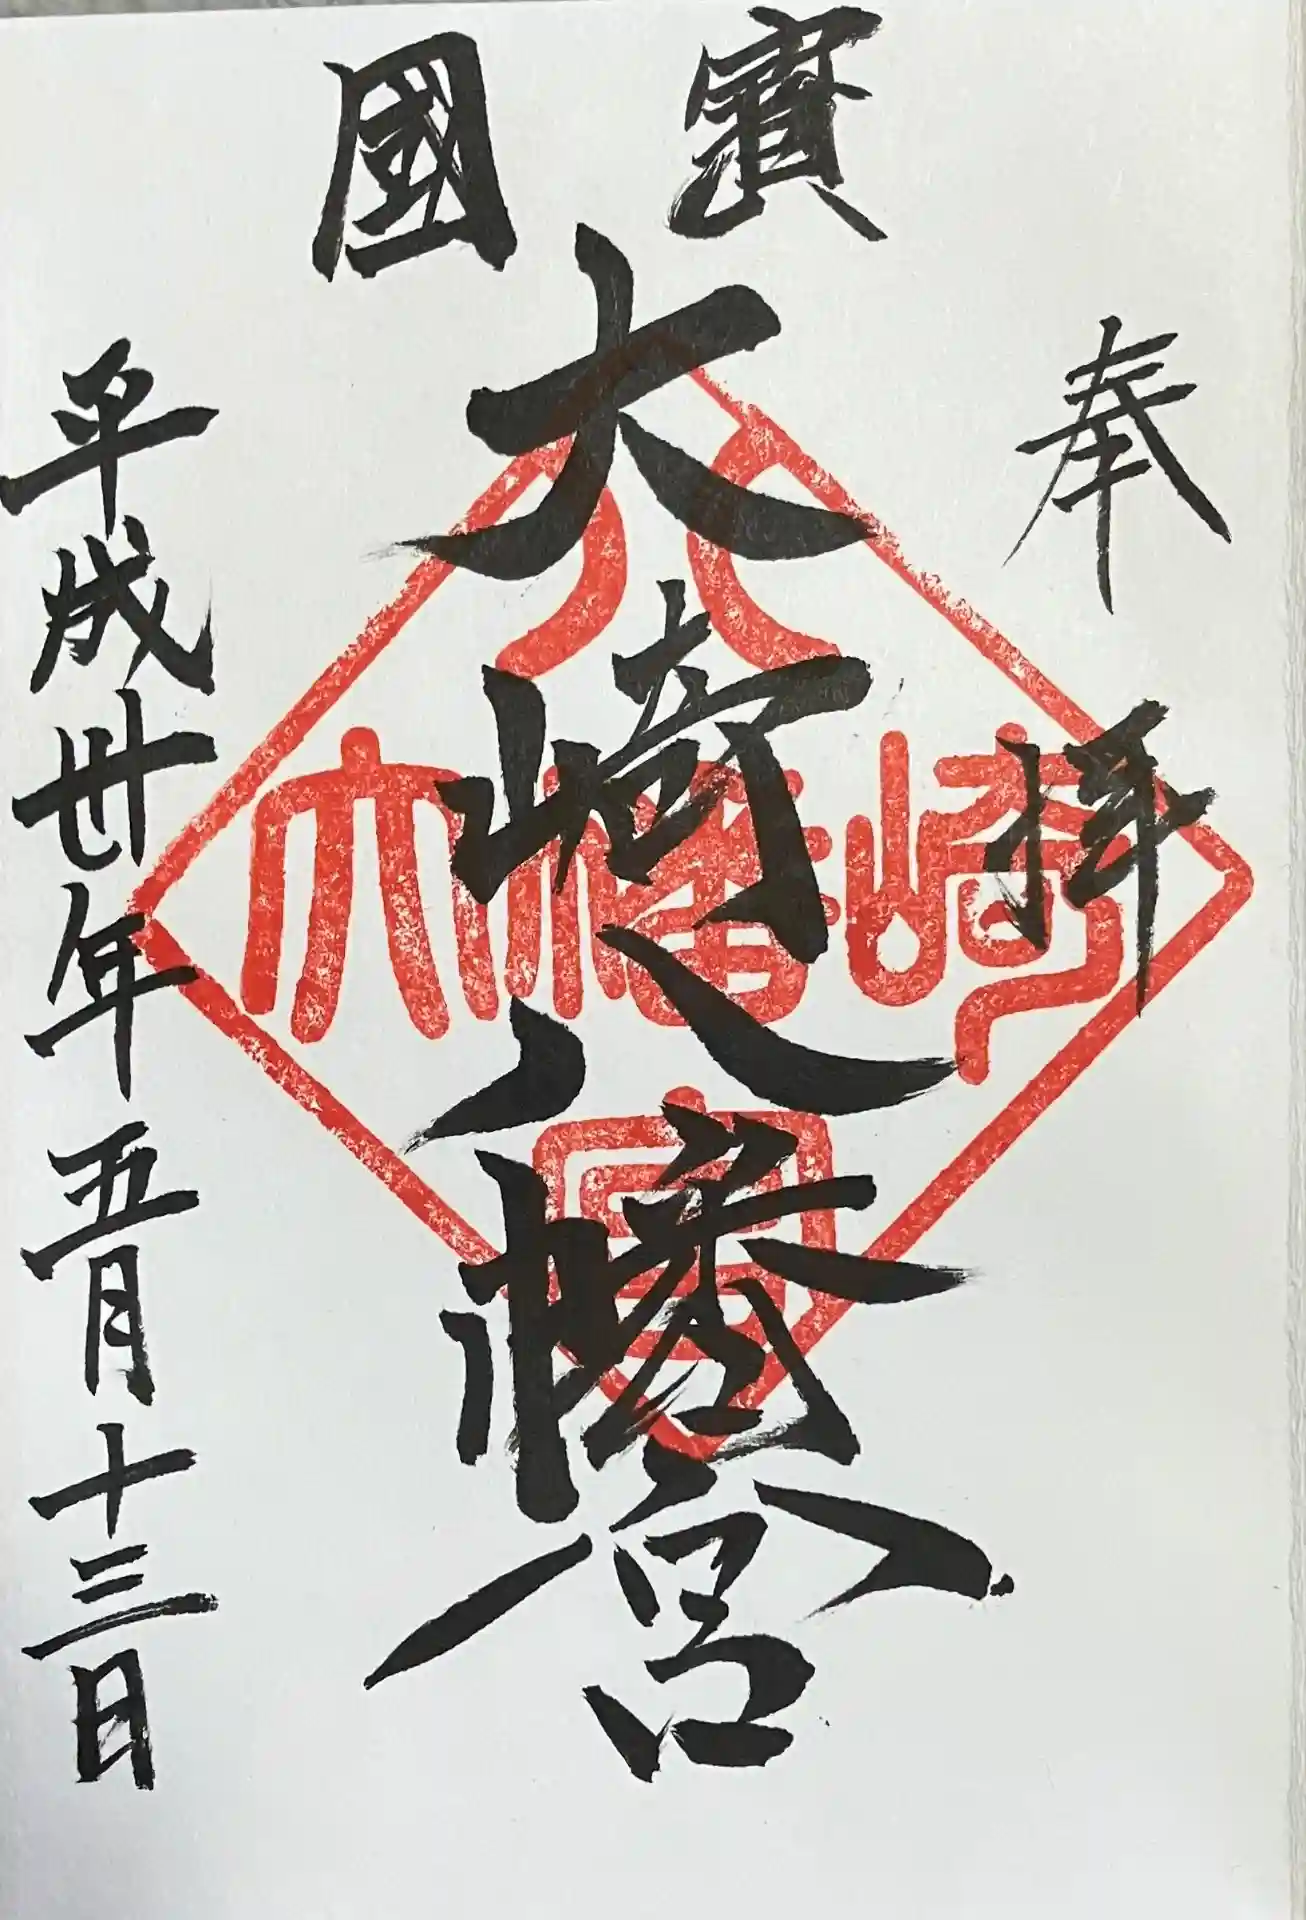 奉拝
國寳
大﨑八幡宮
平成卅年五月十三日
大崎八幡宮